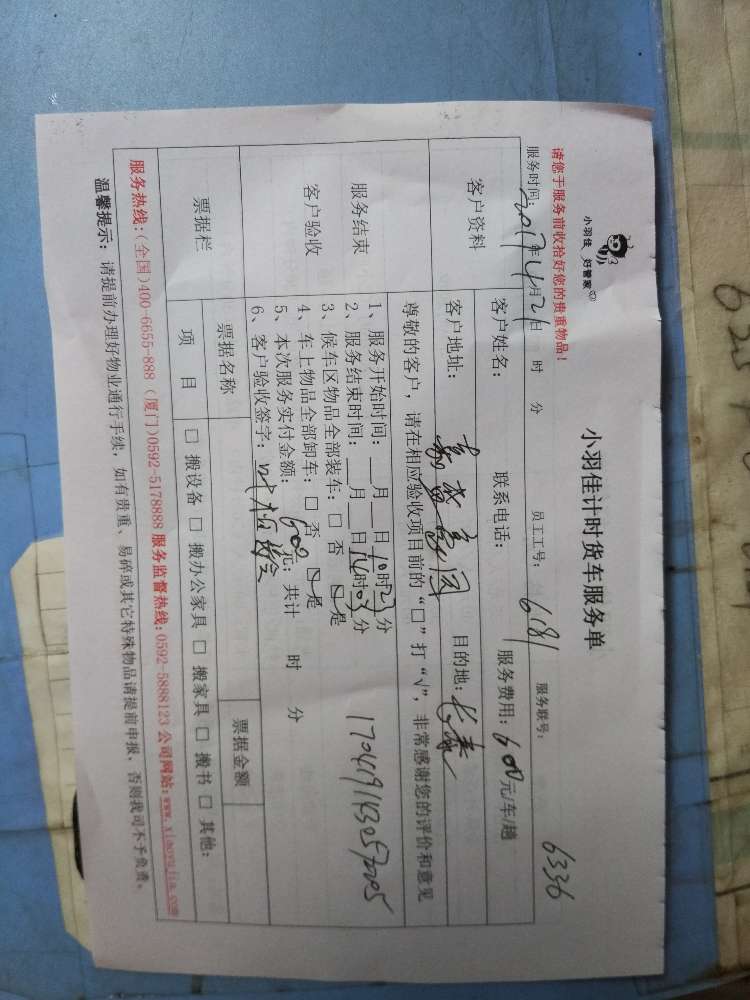 小羽佳 好管家
小羽佳计时货车服务单
6336
请您于服务前收拾好您的贵重物品!
服务时间: 2017年4月21日 时 分 员工工号: 6181 服务联号:
客户资料
客户姓名: 联系电话: 服务费用: 600元/车/趟
客户地址: 目的地: 长泰
服务结束
客户验收
尊敬的客户，请在相应验收项目前的“□”打“√”，非常感谢您的评价和意见
1、服务开始时间: __月__日10时27分
2、服务结束时间: __月__日14时03分
3、候车区物品全部装车: □ 否 ☑ 是
4、车上物品全部卸车: □ 否 ☑ 是
5、本次服务实付金额: 600元; 共计 时 分
6、客户验收签字:
17041911430572005
票据栏
票据名称 票据金额
项 目 □ 搬设备 □ 搬办公家具 □ 搬家具 □ 搬书 □ 其他:
服务热线:(全国)400-6655-888 (厦门)0592-5178888 服务监督热线: 0592-5888123 公司网站: www.xiaoyujia.com
温馨提示: 请提前办理好物业通行手续，如有贵重、易碎或其它特殊物品请提前申报，否则我司不予负责。